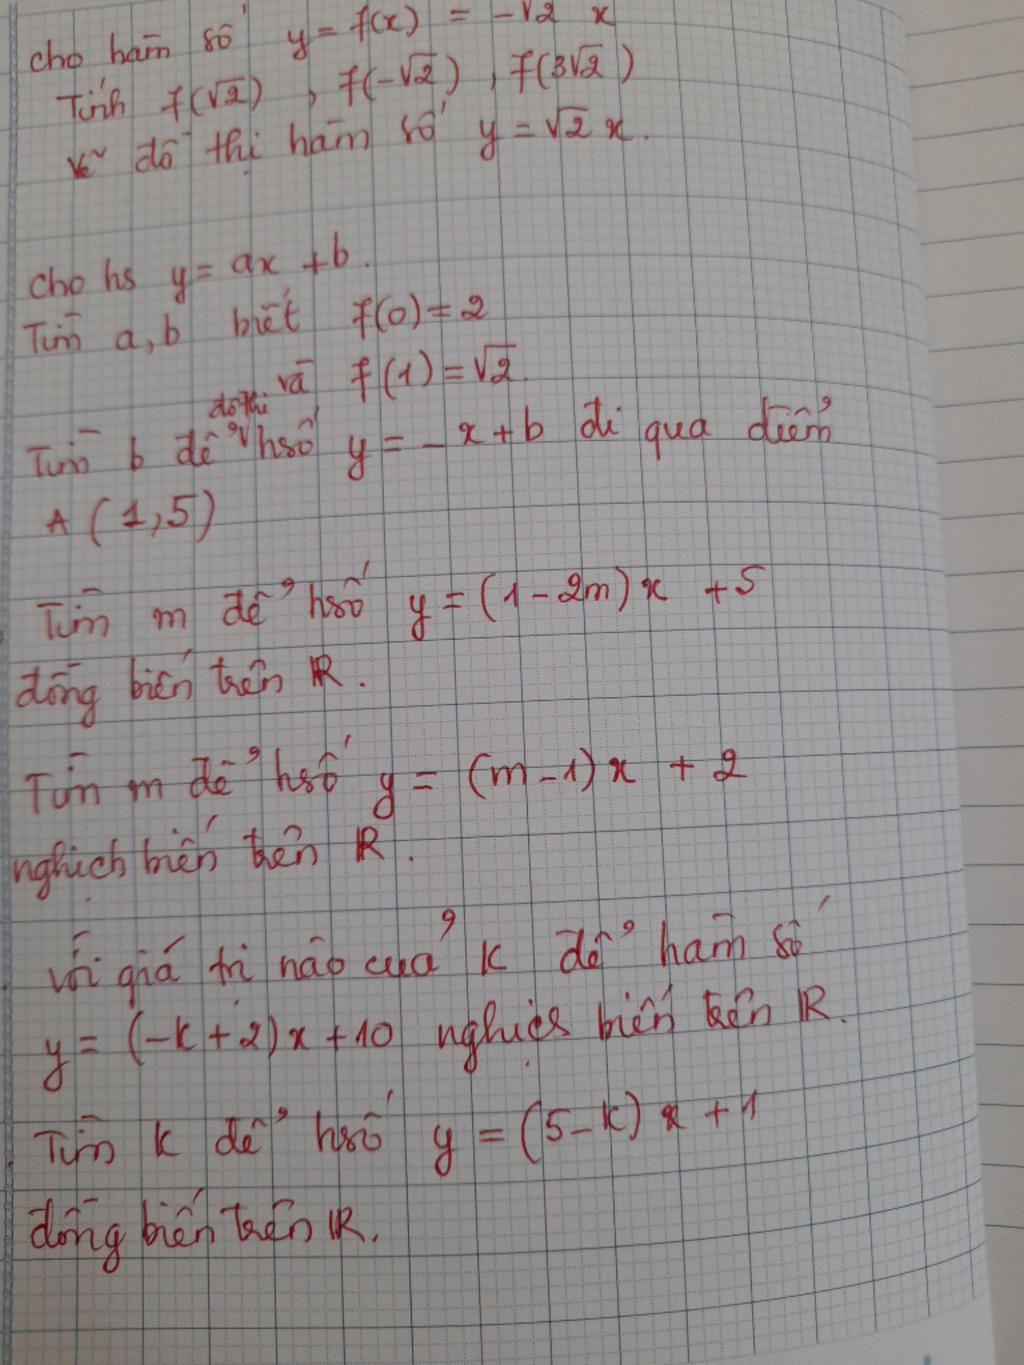 cho hàm số y = f(x) = -√2 x
Tính f(√2) , f(-√2) , f(3√2)
vẽ đồ thị hàm số y = √2 x.
cho hs y = ax + b.
Tìm a, b biết f(0) = 2
và f(1) = √2.
Tìm b để đồ thị hsố y = -x + b đi qua điểm
A (1,5)
Tìm m để hsố y = (1-2m)x + 5
đồng biến trên ℝ.
Tìm m để hsố y = (m-1)x + 2
nghịch biến trên ℝ.
với giá trị nào của k để hàm số
y = (-k+2)x + 10 nghịch biến trên ℝ.
Tìm k để hsố y = (5-k)x + 1
đồng biến trên ℝ.